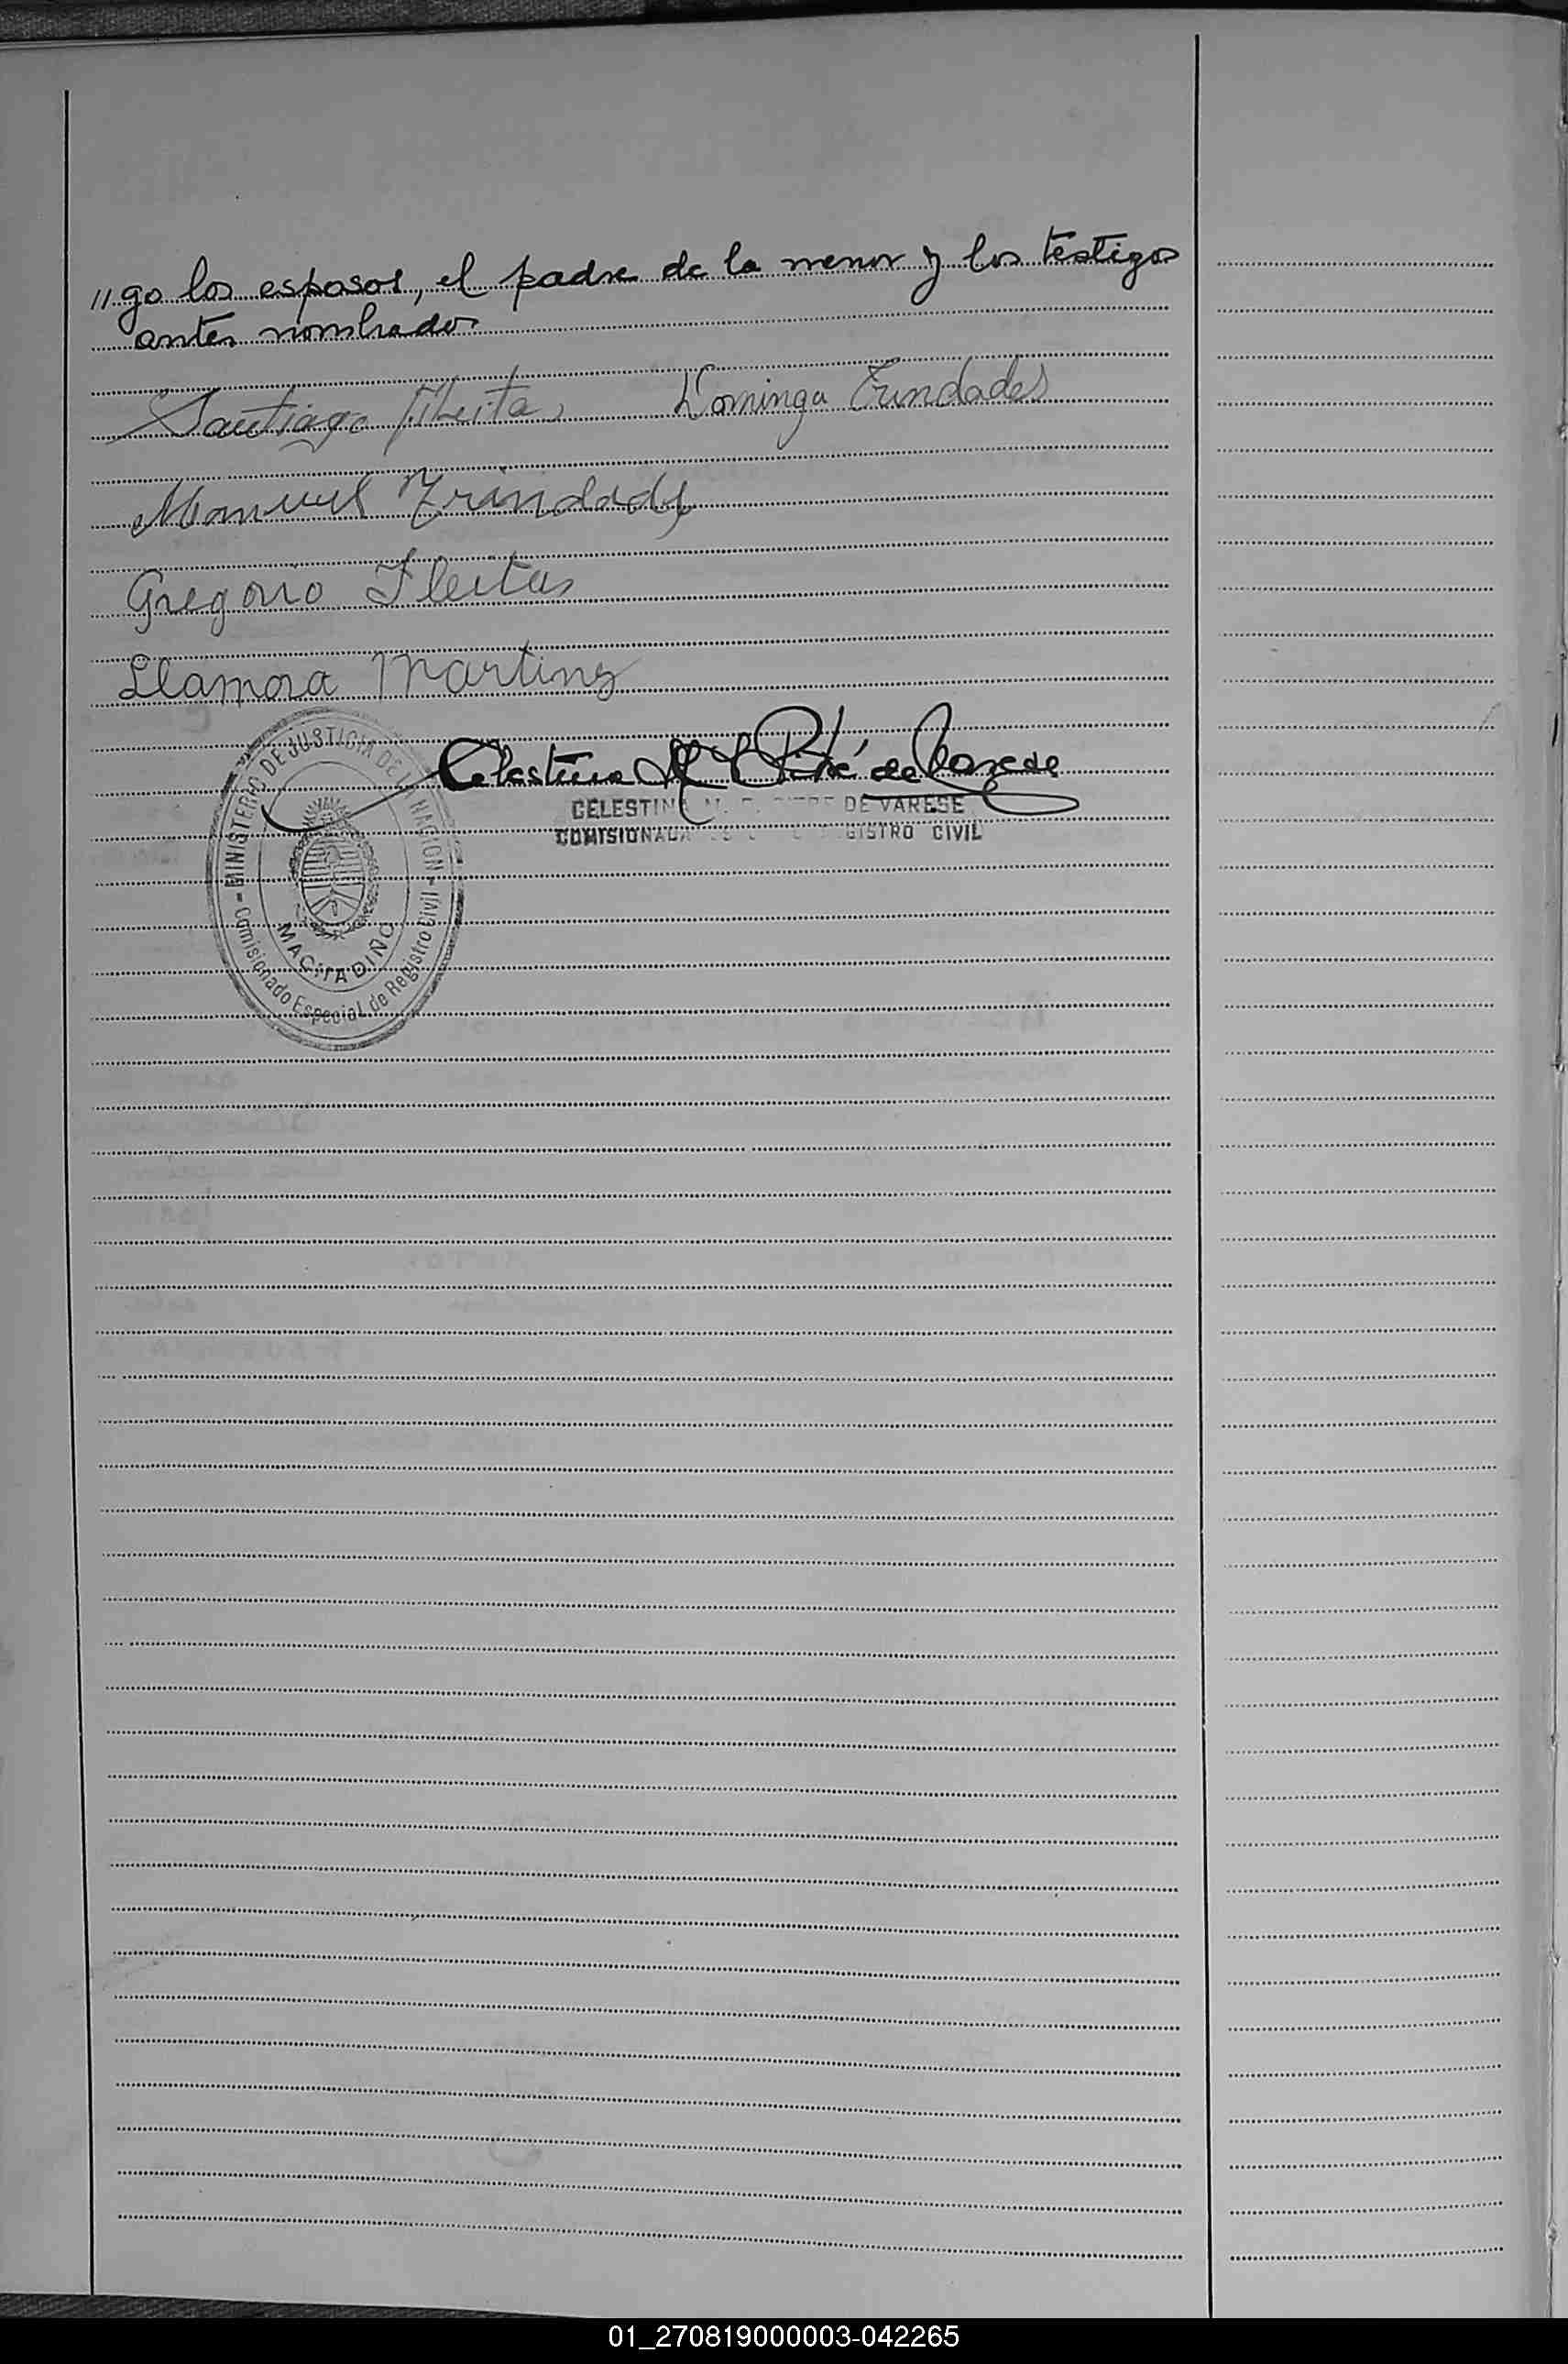 "go los esposos, el padre de la menor y los testigos
antes nombrados
Santiago Fleitas Dominga Trindades
Manuel Trindade
Gregorio Fleitas
Llamora Martins
Celestina M. de Varese
CELESTINA M. DE VARESE
COMISIONADA REGISTRO CIVIL
MINISTERIO DE JUSTICIA DE LA NACION
MACHADIÑO
Comisionado Especial de Registro Civil
01_270819000003-042265